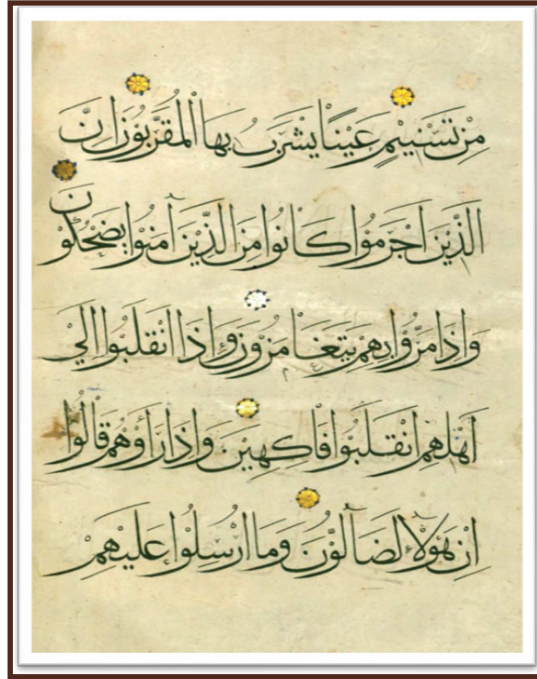 مِنْ تَسْنِيْمٍ عَيْنًا يَشْرَبُ بِهَا الْمُقَرَّبُوْنَ اِنَّ
الَّذِيْنَ اَجْرَمُوْا كَانُوْا مِنَ الَّذِيْنَ آمَنُوْا يَضْحَكُوْنَ
وَاِذَا مَرُّوْا بِهِمْ يَتَغَامَزُوْنَ وَاِذَا انْقَلَبُوْا اِلَىْ
اَهْلِهِمُ انْقَلَبُوْا فَاكِهِيْنَ وَاِذَا رَاَوْهُمْ قَالُوْا
اِنَّ هٰؤُلَاۤءِ لَضَاۤلُّوْنَ وَمَا اُرْسِلُوْا عَلَيْهِمْ